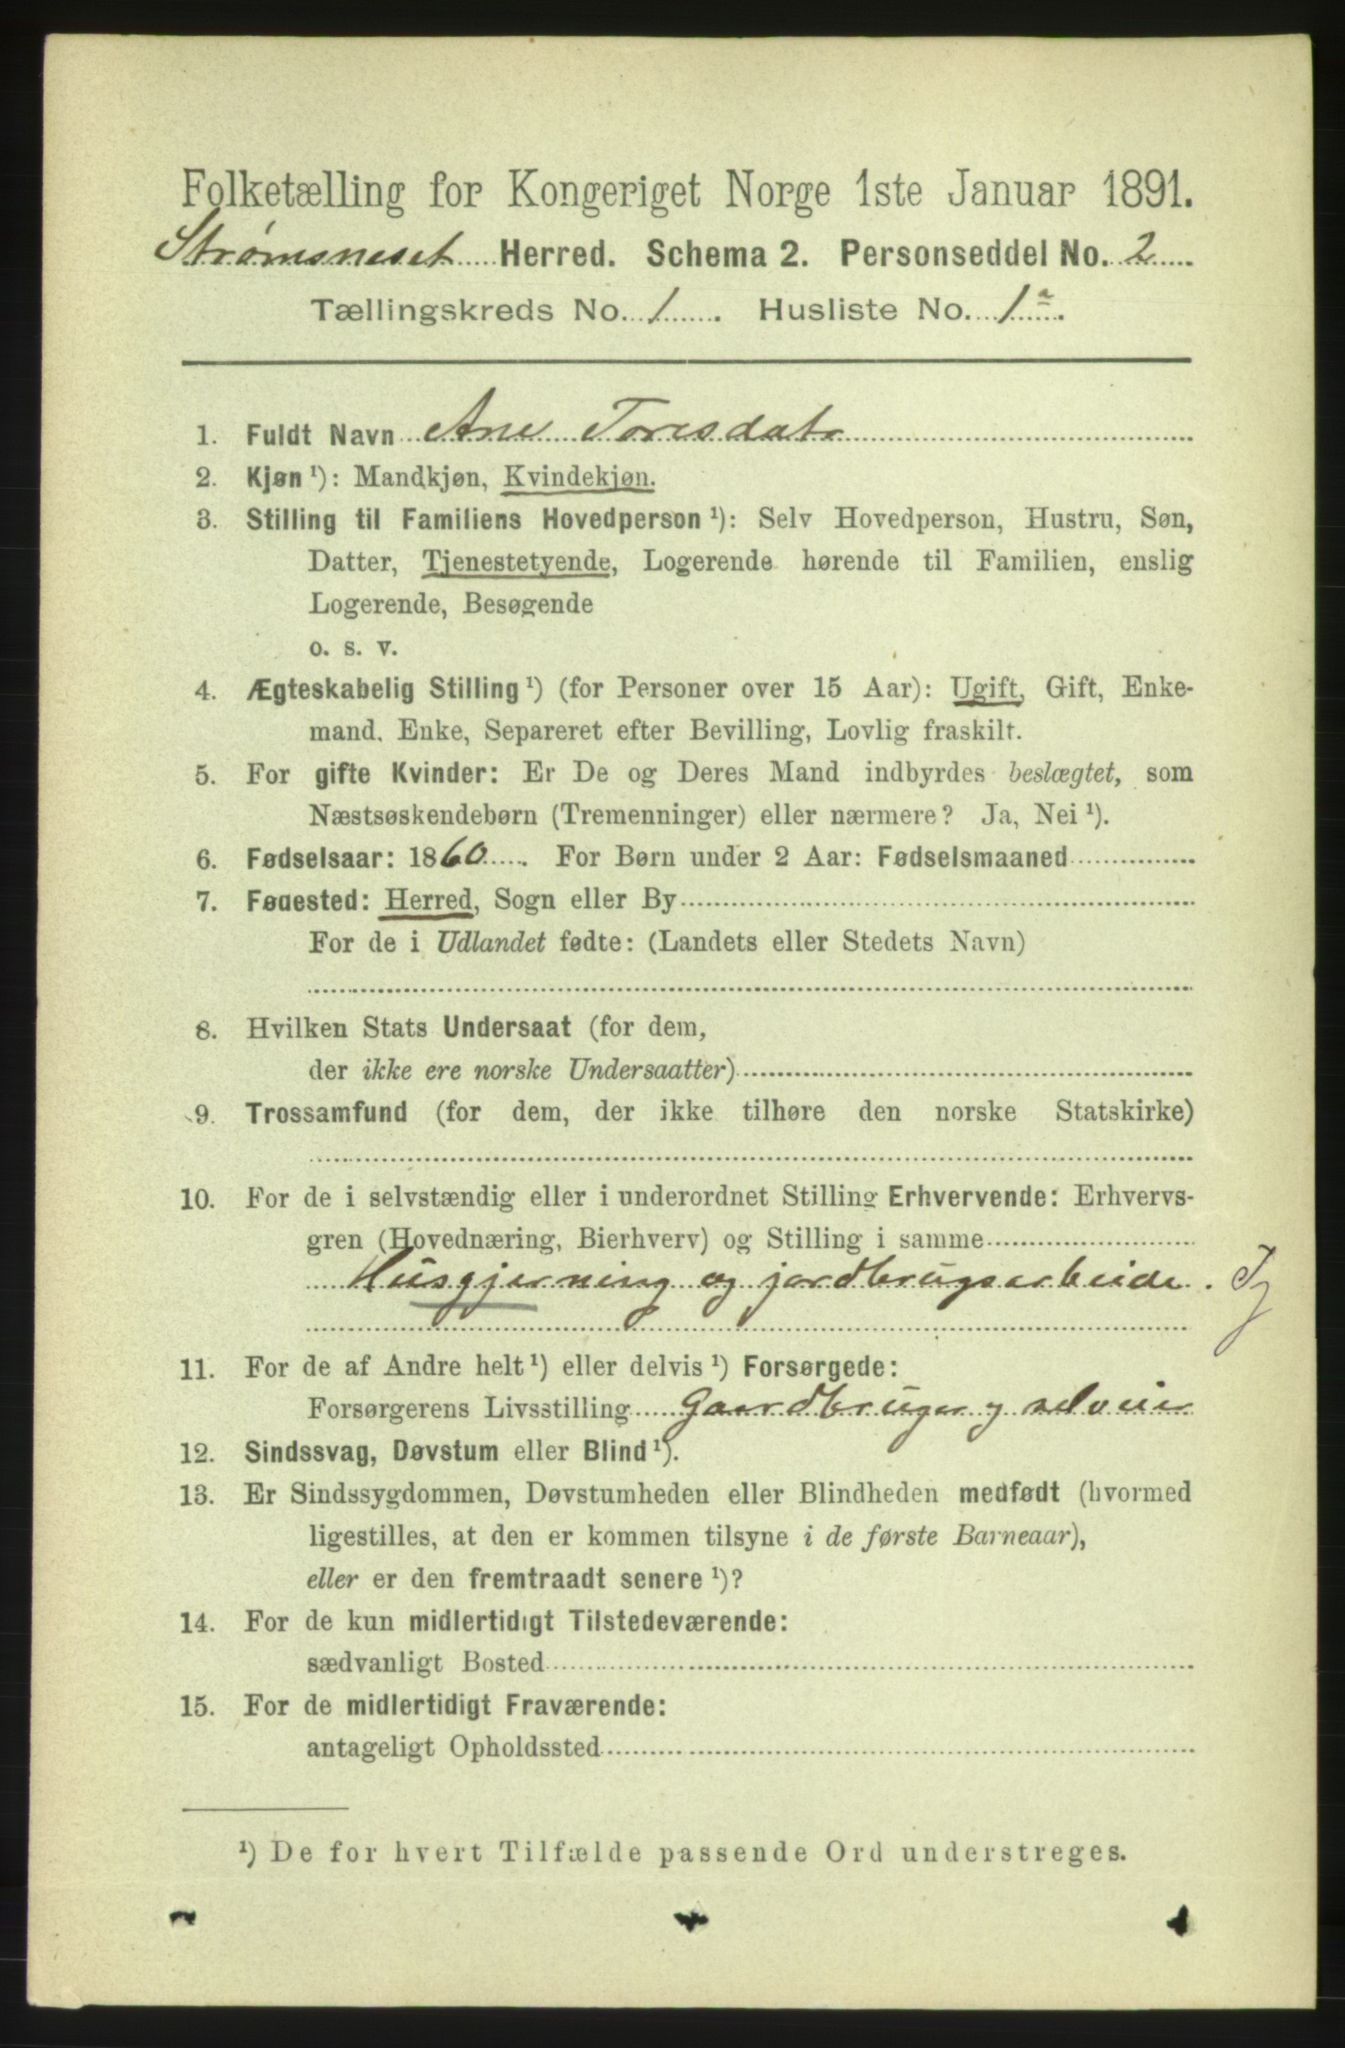 Folketælling for Kongeriget Norge 1ste Januar 1891.
Strømsneset Herred. Schema 2. Personseddel No. 2
Tællingskreds No. 1. Husliste No. 1a.
1. Fuldt Navn Ane Toresdatr
2. Kjøn ¹): Mandkjøn, Kvindekjøn.
3. Stilling til Familiens Hovedperson ¹): Selv Hovedperson, Hustru, Søn,
Datter, Tjenestetyende, Logerende hørende til Familien, enslig
Logerende, Besøgende
o. s. v.
4. Ægteskabelig Stilling ¹) (for Personer over 15 Aar): Ugift, Gift, Enke-
mand, Enke, Separeret efter Bevilling, Lovlig fraskilt.
5. For gifte Kvinder: Er De og Deres Mand indbyrdes beslægtet, som
Næstsøskendebørn (Tremenninger) eller nærmere? Ja, Nei ¹).
6. Fødselsaar: 1860. For Børn under 2 Aar: Fødselsmaaned
7. Fødested: Herred, Sogn eller By
For de i Udlandet fødte: (Landets eller Stedets Navn)
8. Hvilken Stats Undersaat (for dem,
der ikke ere norske Undersaatter)
9. Trossamfund (for dem, der ikke tilhøre den norske Statskirke)
10. For de i selvstændig eller i underordnet Stilling Erhvervende: Erhvervs-
gren (Hovednæring, Bierhverv) og Stilling i samme
Husgjerning og jordbrugsarbeide. Tj
11. For de af Andre helt ¹) eller delvis ¹) Forsørgede:
Forsørgerens Livsstilling Gaardbruger og selveier
12. Sindssvag, Døvstum eller Blind ¹).
13. Er Sindssygdommen, Døvstumheden eller Blindheden medfødt (hvormed
ligestilles, at den er kommen tilsyne i de første Barneaar),
eller er den fremtraadt senere ¹)?
14. For de kun midlertidigt Tilstedeværende:
sædvanligt Bosted
15. For de midlertidigt Fraværende:
antageligt Opholdssted
¹) De for hvert Tilfælde passende Ord understreges.